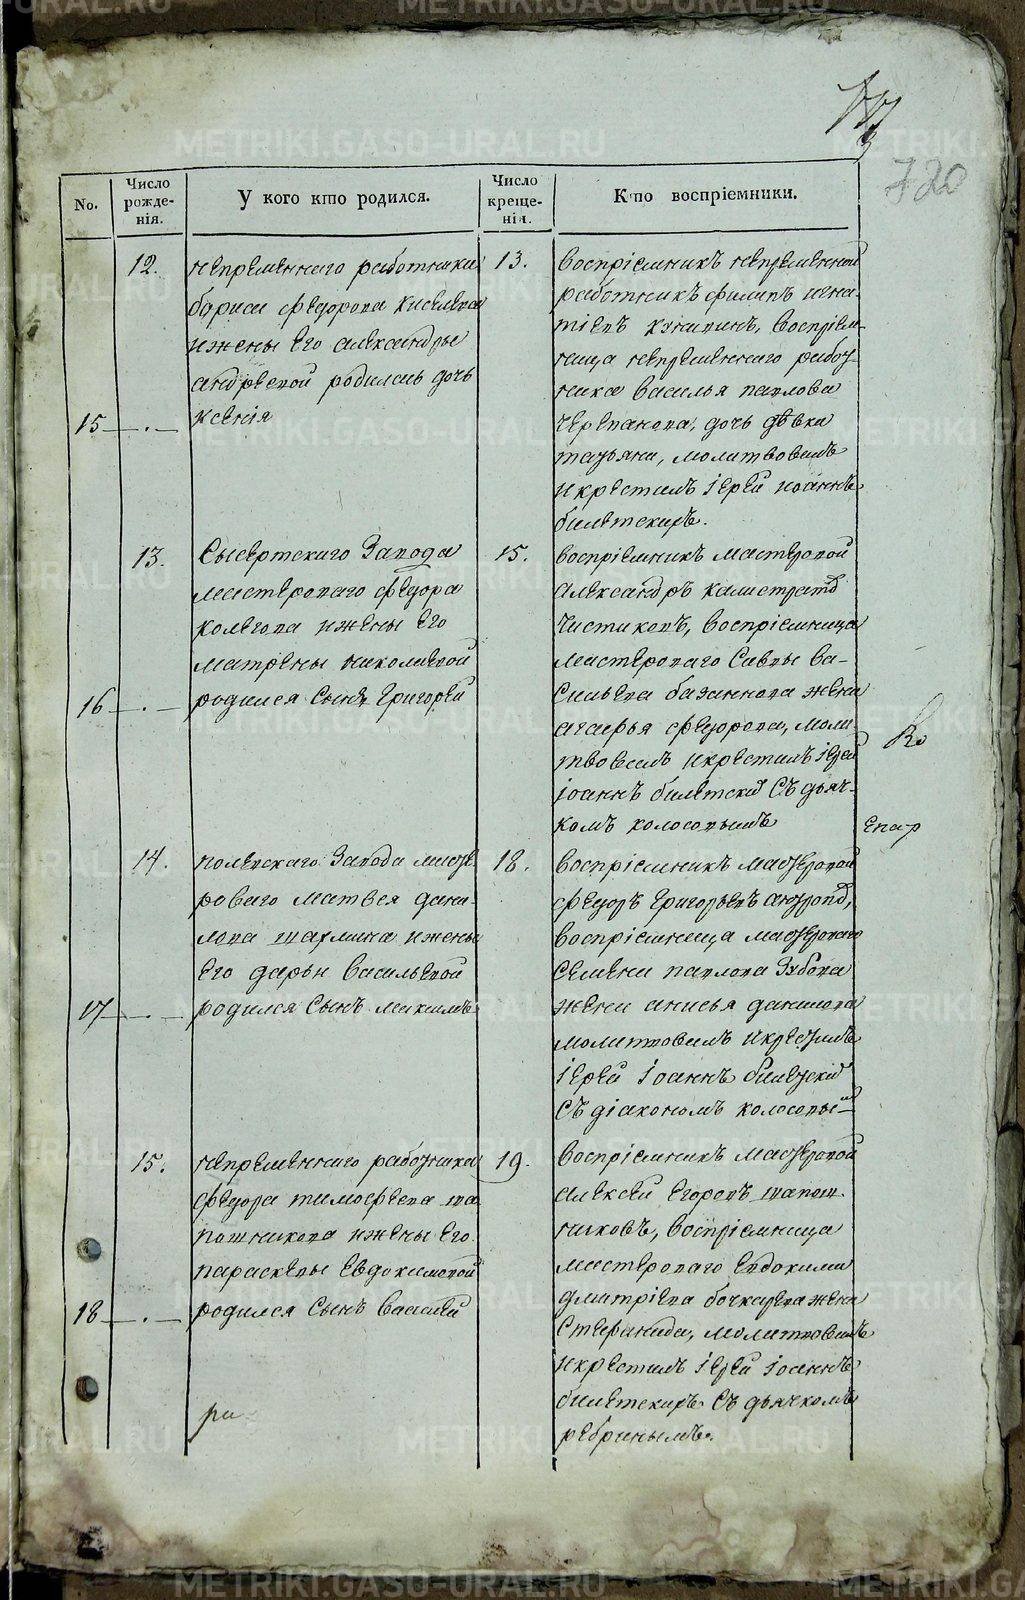 720
No.
Число рожде- нія.
У кого кто родился.
Число креще- нія.
Кто воспріемники.
12.
непременнаго работника
бориса федорова киселева
ижены Его александры
андревой родилась дочь
15
ксенія
13.
воспріемникъ непременной
работникъ филипъ игна-
тіевъ
воспріем-
ница непременнаго работ-
ника василья павлова
черепанова, дочь дѣвка
татьяна, молитвовалъ
икрестилъ іерей иоаннъ
билетскиръ.
13.
Сысертскаго Завода
мастероваго федора
колегова ижены Его
матрены николаевой
16
родился Сынъ Григорей
15.
воспріемникъ мастеровой
александръ калистратъ
Чистиковъ, воспріемница
мастероваго Савы ва-
сильева баженнова жена
агафья федорова, моли-
твовалъ икрестилъ іерей
іоаннъ билетскій Съ дьяч-
комъ колосовымъ
14.
полевскаго Завода масте
роваго матвея дани-
лова шахмина ижены
Его дарьи васильевой
17
родился Сынъ максимъ
18.
воспріемникъ мастеровой
федоръ Григорьевъ
воспріемница мастероваго
Семена павлова Зубова
жена анисья данилова
молитвовалъ икрестилъ
іерей іоаннъ билетскій
Съ діакономъ колосовы
15.
непременнаго работника
федора тимофеева ша
пошникова ижены Его
параскевы Евдокимовой
18
родился Сынъ василей
19.
воспріемникъ мастеровой
алексей Егоровъ шапош
никовъ, воспріемница
мастероваго Евдокима
дмитріева бочкарева жена
Стефанида, молитвовалъ
икрестилъ іерей іоаннъ
билетскиръ Съ дьячкомъ
ребринымъ.
Епар
METRIKI.GASO-URAL.RU